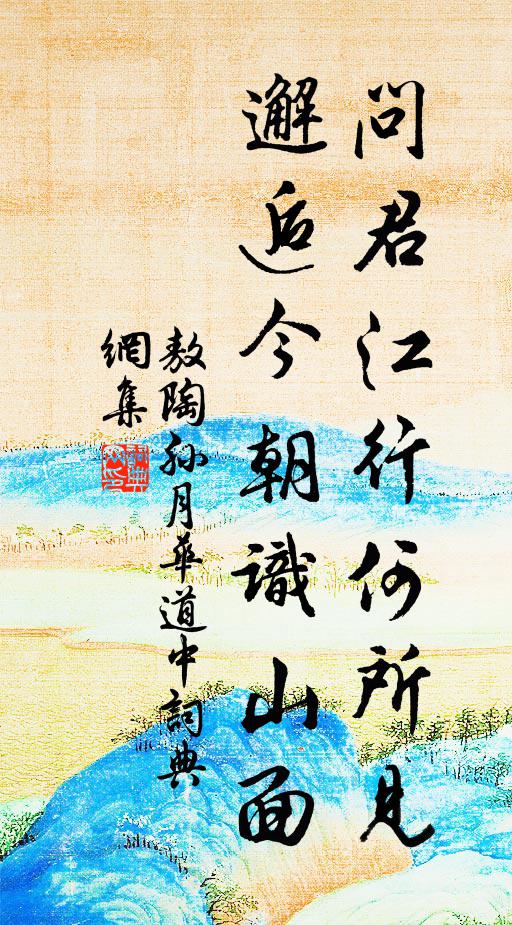 問君江行何所見
邂逅今朝識山面
敖陶孫月華道中詞典
網集